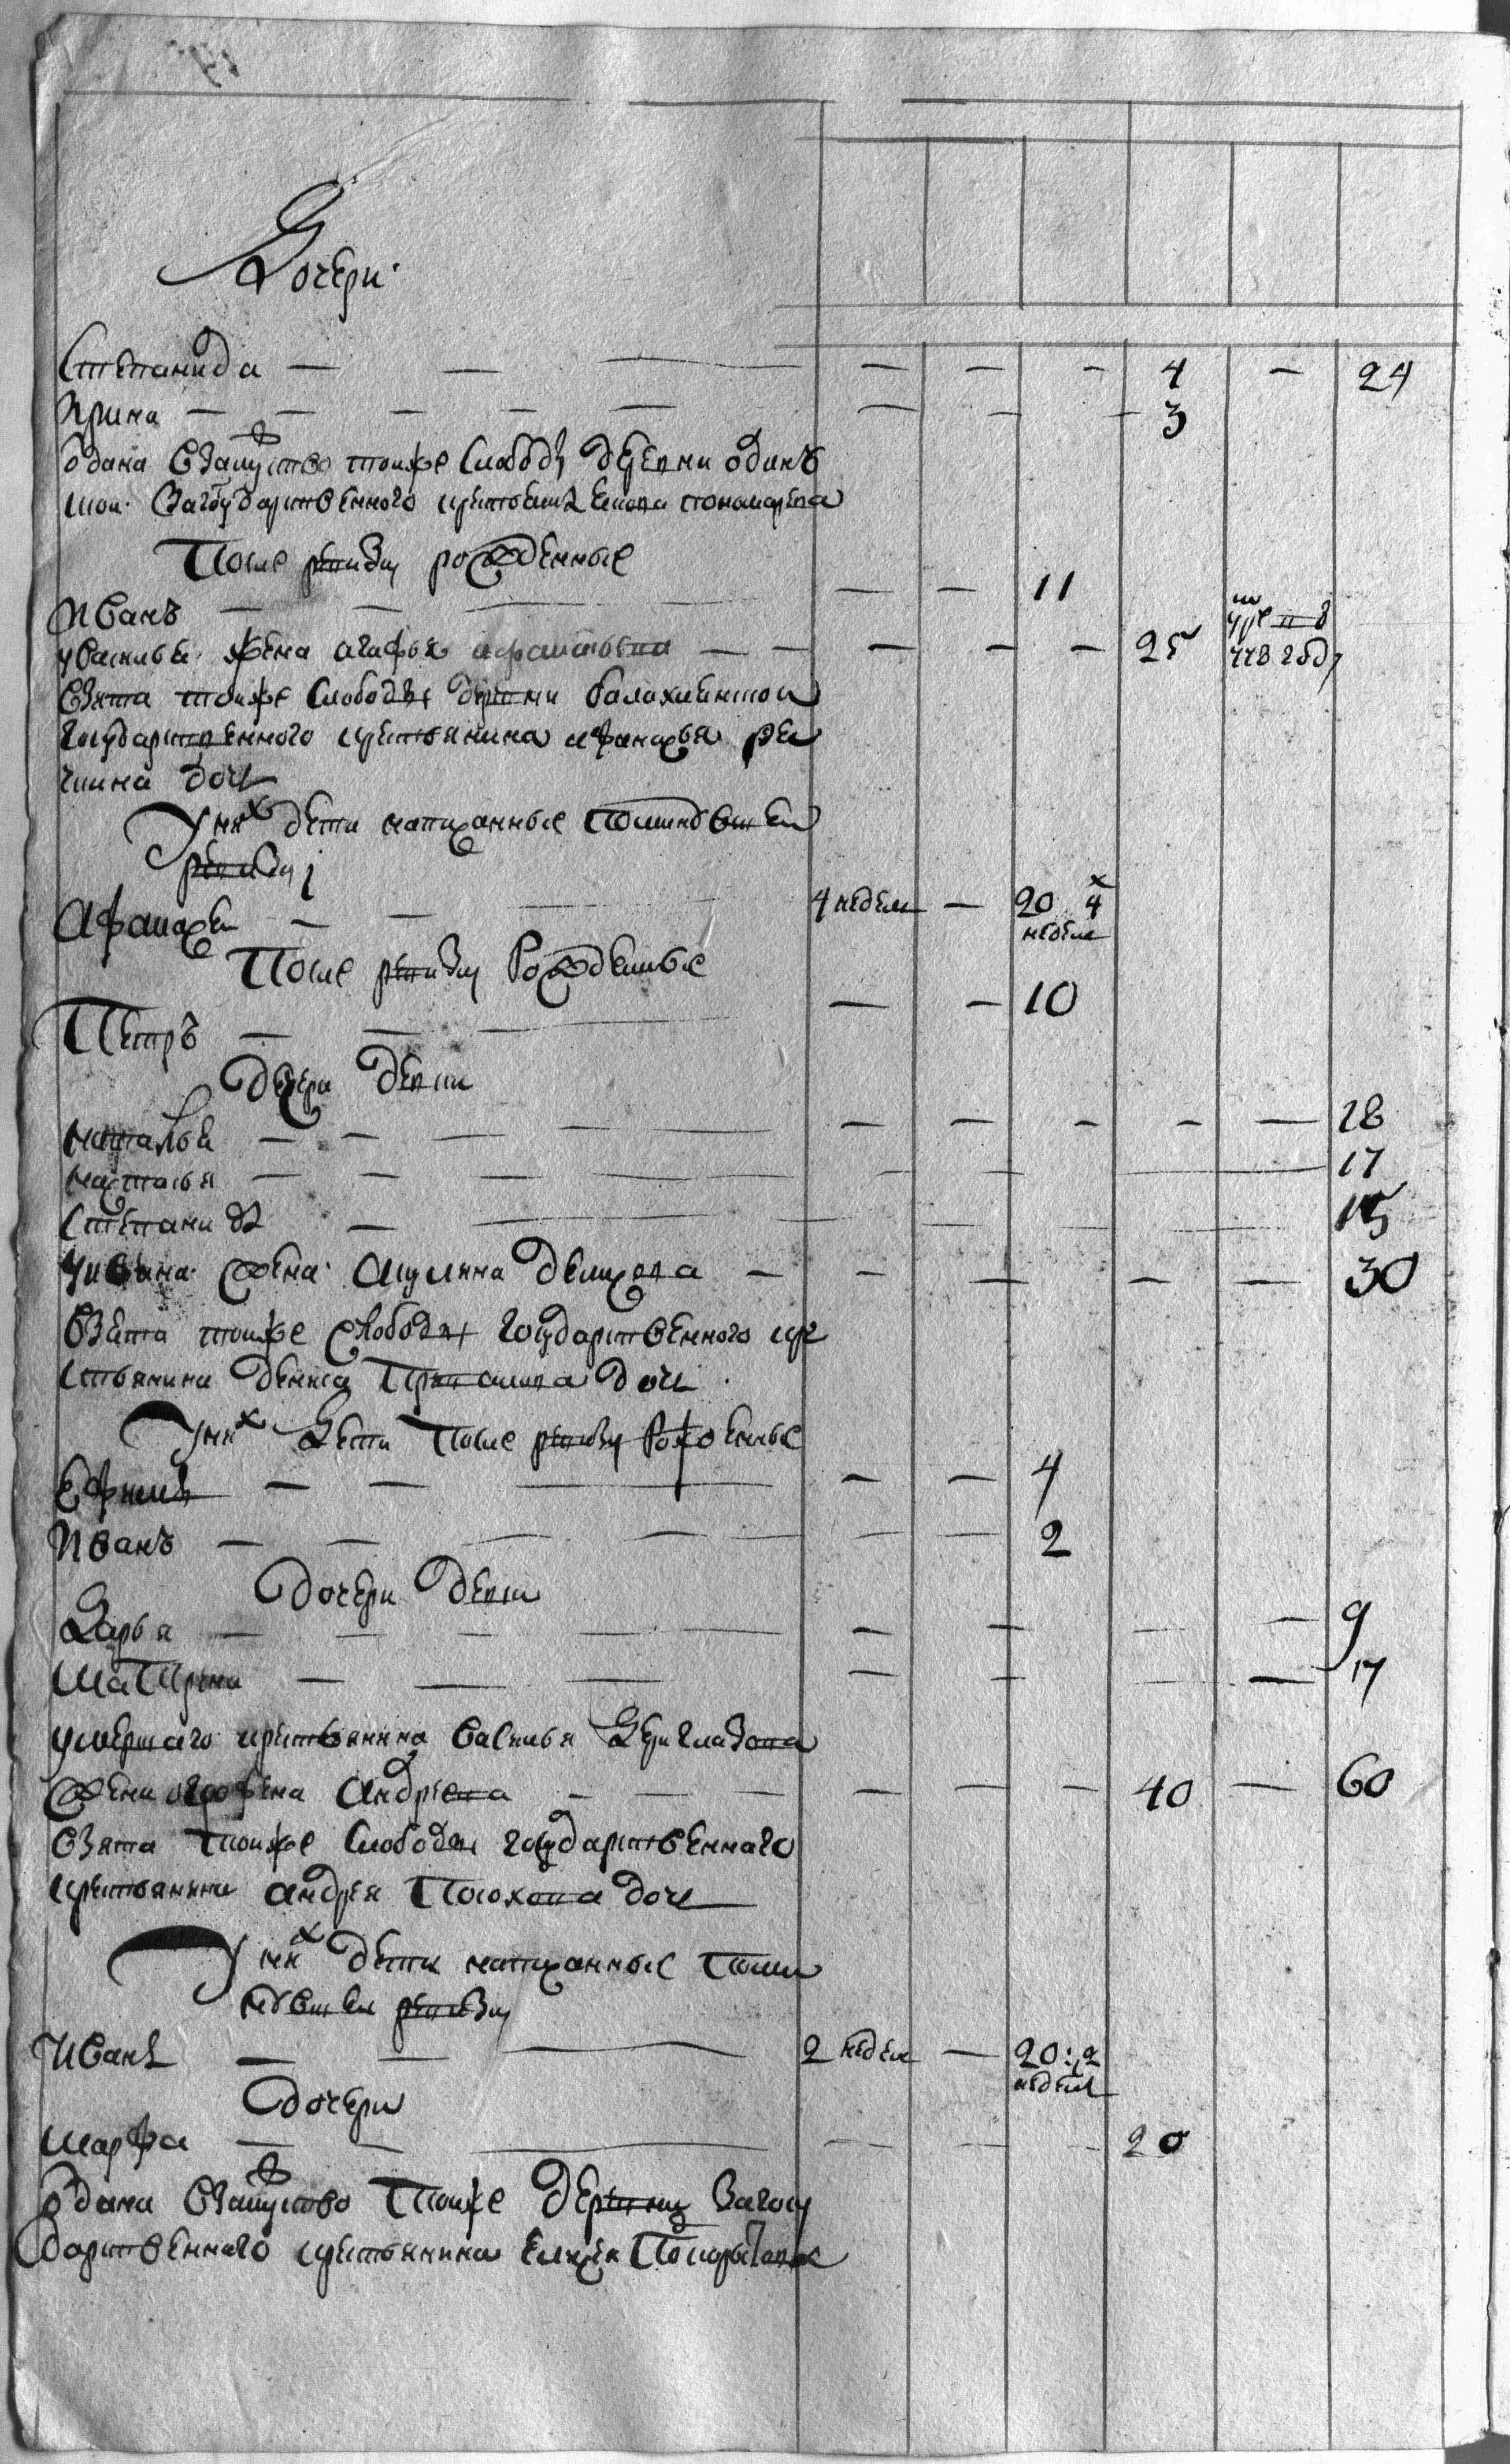 Дочери
Степанида — — — — — — 4 — 24
Ирина — — — — — — — — 3
одана взамуство тоиже слободы деревни
за государственного крестьянина пономарева
После ревизи рожденные
Иванъ — — — — — 11
уваси́лья жена агафья — — — — — 25
взята тоиже слободы деревни балахлеинскои
государственного крестьянина афанасья
дочь
У них дети написанные впоследнеи
ревизи
Афанасеи — — — 4 недели — 20 4 недели
После ревизи Рожденные
Петръ — — — — — 10
дочери дети
наталья — — — — — — — — — 28
настасья — — — — — — — 17
Степанида — — — — — — — 15
уивана жена акулина денисова — — — — — 30
взята тоиже слободы государственного кре
стьянина дениса дочь
У них дети После ревизи Рожденные
Ефимъ — — — — — 4
Иванъ — — — — — — — 2
дочери дети
Дарья — — — — — — — — — 9
Матрена — — — — — — — 17
умершаго крестьянина василья Дерглазова
жена Андреева — — — — — — 40 — 60
взята тоиже слободы государственнаго
крестьянина андрея дочь
У них дети написанные впосле
днеи ревизи
Иванъ — — — 2 недели — 20: 2 недели
дочери
марфа — — — — — — 20
одана взамуство тоиже деревни за госу
дарственнаго крестьянина елисея